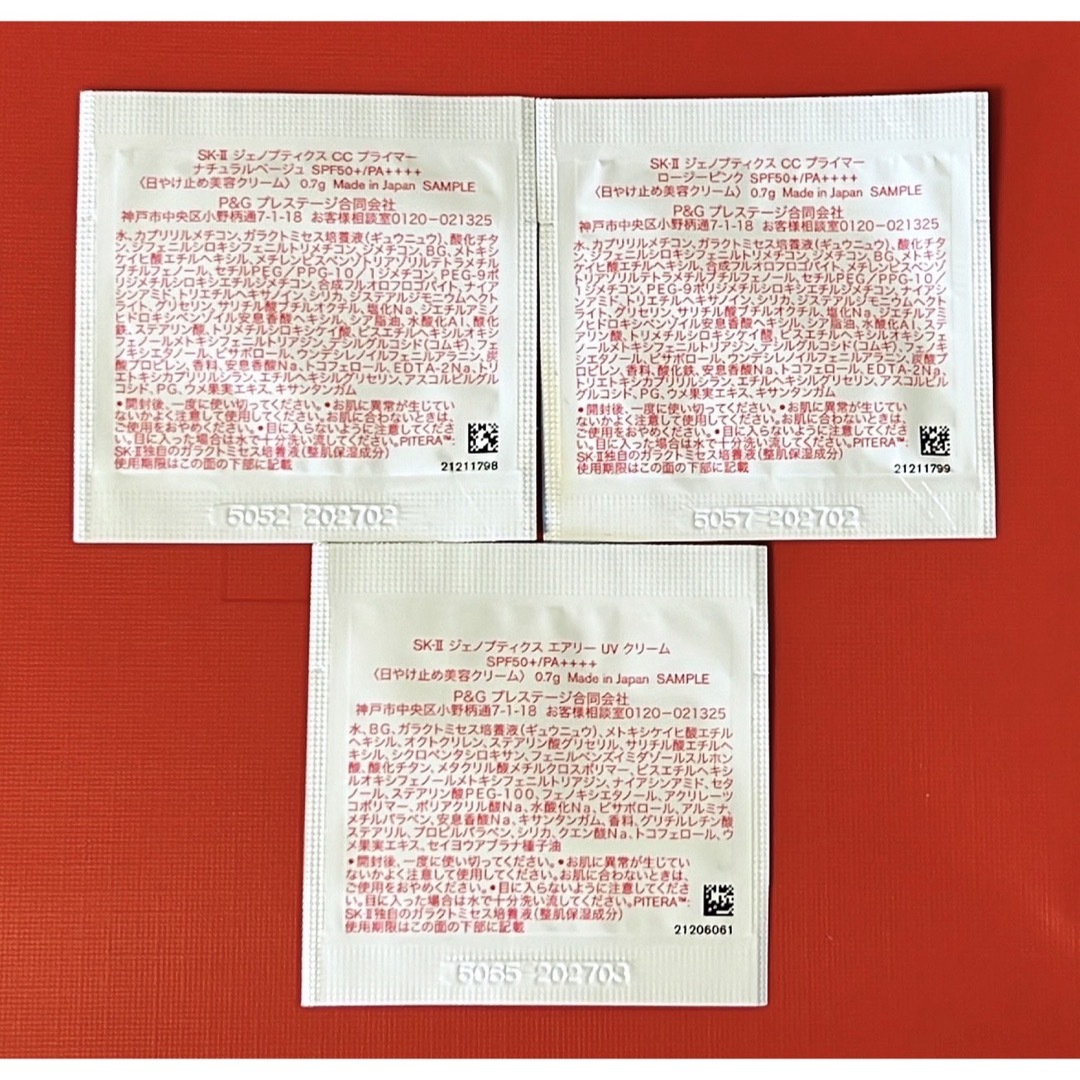 SK-II ジェノプティクス CC プライマー
ナチュラルベージュ SPF50+/PA++++
〈日やけ止め美容クリーム〉 0.7g Made in Japan SAMPLE
P&G プレステージ合同会社
神戸市中央区小野柄通7-1-18 お客様相談室0120-021325
水、カプリリルメチコン、ガラクトミセス培養液(ギュウニュウ)、酸化チタ
ン、ジフェニルシロキシフェニルトリメチコン、ジメチコン、BG、メトキシ
ケイヒ酸エチルヘキシル、メチレンビスベンゾトリアゾリルテトラメチル
ブチルフェノール、セチルPEG/PPG-10/1ジメチコン、PEG-9ポ
リジメチルシロキシエチルジメチコン、合成フルオロフロゴパイト、ナイア
シンアミド、トリエチルヘキサノイン、シリカ、ジステアルジモニウムヘクト
ライト、グリセリン、サリチル酸ブチルオクチル、塩化Na、ジエチルアミノ
ヒドロキシベンゾイル安息香酸ヘキシル、シア脂油、水酸化Al、酸化
鉄、ステアリン酸、トリメチルシロキシケイ酸、ビスエチルヘキシルオキシ
フェノールメトキシフェニルトリアジン、デシルグルコシド(コムギ)、フェノ
キシエタノール、ビサボロール、ウンデシレノイルフェニルアラニン、炭
酸プロピレン、香料、安息香酸Na、トコフェロール、EDTA-2Na、トリ
エトキシカプリリルシラン、エチルヘキシルグリセリン、アスコルビルグル
コシド、PG、ウメ果実エキス、キサンタンガム
●開封後、一度に使い切ってください。●お肌に異常が生じてい
ないかよく注意して使用してください。お肌に合わないときは、
ご使用をおやめください。●目に入らないように注意してくださ
い。目に入った場合は水で十分洗い流してください。PITERA™:
SK-II独自のガラクトミセス培養液(整肌保湿成分)
使用期限はこの面の下部に記載
21211798
5052 202702
SK-II ジェノプティクス CC プライマー
ロージーピンク SPF50+/PA++++
〈日やけ止め美容クリーム〉 0.7g Made in Japan SAMPLE
P&G プレステージ合同会社
神戸市中央区小野柄通7-1-18 お客様相談室0120-021325
水、カプリリルメチコン、ガラクトミセス培養液(ギュウニュウ)、酸化チタ
ン、ジフェニルシロキシフェニルトリメチコン、ジメチコン、BG、メトキシ
ケイヒ酸エチルヘキシル、合成フルオロフロゴパイト、メチレンビスベンゾ
トリアゾリルテトラメチルブチルフェノール、セチルPEG/PPG-10/
1ジメチコン、PEG-9ポリジメチルシロキシエチルジメチコン、ナイアシ
ンアミド、トリエチルヘキサノイン、シリカ、ジステアルジモニウムヘクト
ライト、グリセリン、サリチル酸ブチルオクチル、塩化Na、ジエチルアミ
ノヒドロキシベンゾイル安息香酸ヘキシル、シア脂油、水酸化Al、ステ
アリン酸、トリメチルシロキシケイ酸、ビスエチルヘキシルオキシフェノー
ルメトキシフェニルトリアジン、デシルグルコシド(コムギ)、フェノキ
シエタノール、ビサボロール、ウンデシレノイルフェニルアラニン、炭酸プ
ロピレン、香料、酸化鉄、安息香酸Na、トコフェロール、EDTA-2Na、
トリエトキシカプリリルシラン、エチルヘキシルグリセリン、アスコルビル
グルコシド、PG、ウメ果実エキス、キサンタンガム
●開封後、一度に使い切ってください。●お肌に異常が生じてい
ないかよく注意して使用してください。お肌に合わないときは、
ご使用をおやめください。●目に入らないように注意してくださ
い。目に入った場合は水で十分洗い流してください。PITERA™:
SK-II独自のガラクトミセス培養液(整肌保湿成分)
使用期限はこの面の下部に記載
21211799
5057 202702
SK-II ジェノプティクス エアリー UV クリーム
SPF50+/PA++++
〈日やけ止め美容クリーム〉 0.7g Made in Japan SAMPLE
P&G プレステージ合同会社
神戸市中央区小野柄通7-1-18 お客様相談室0120-021325
水、BG、ガラクトミセス培養液(ギュウニュウ)、メトキシケイヒ酸エチル
ヘキシル、オクトクリレン、ステアリン酸グリセリル、サリチル酸エチルヘ
キシル、シクロペンタシロキサン、フェニルベンズイミダゾールスルホン
酸、酸化チタン、メタクリル酸メチルクロスポリマー、ビスエチルヘキシ
ルオキシフェノールメトキシフェニルトリアジン、ナイアシンアミド、セタ
ノール、ステアリン酸PEG-100、フェノキシエタノール、アクリレーツ
コポリマー、ポリアクリル酸Na、水酸化Na、ビサボロール、アルミナ、
メチルパラベン、安息香酸Na、キサンタンガム、香料、グリチルレチン酸
ステアリル、プロピルパラベン、シリカ、クエン酸Na、トコフェロール、ウ
メ果実エキス、セイヨウアブラナ種子油
●開封後、一度に使い切ってください。●お肌に異常が生じてい
ないかよく注意して使用してください。お肌に合わないときは、
ご使用をおやめください。●目に入らないように注意してくださ
い。目に入った場合は水で十分洗い流してください。PITERA™:
SK-II独自のガラクトミセス培養液(整肌保湿成分)
使用期限はこの面の下部に記載
21206061
5065 202703